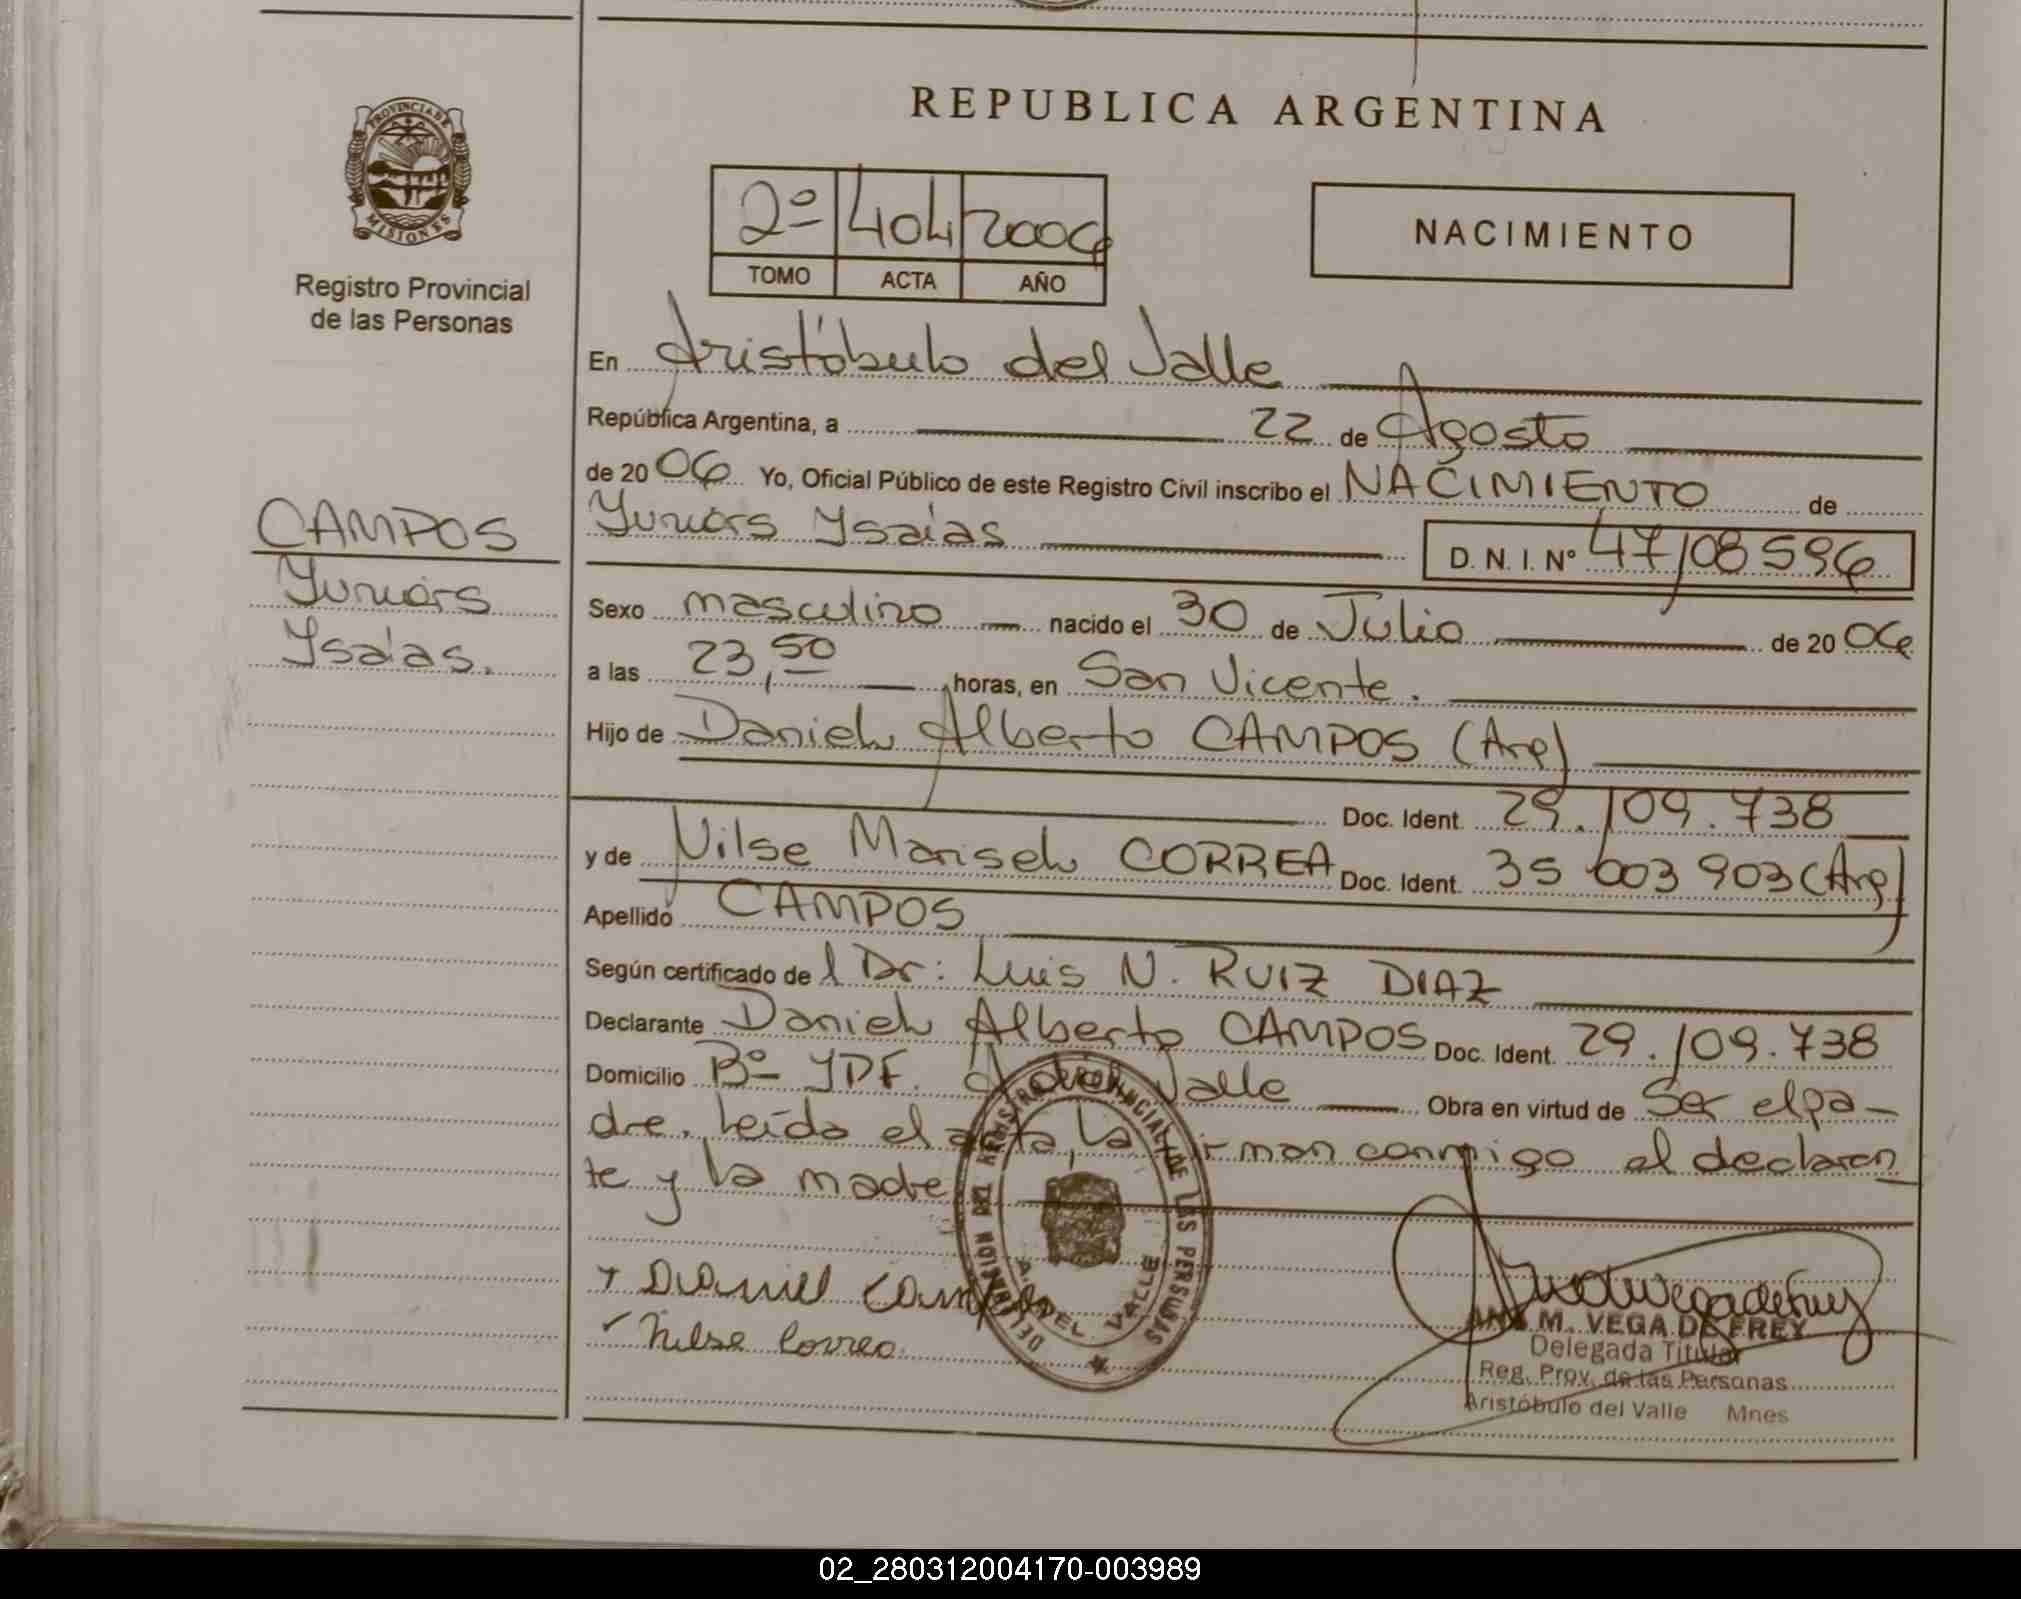 REPUBLICA ARGENTINA
PROVINCIA DE
MISIONES
Registro Provincial
de las Personas
2º 404 2006
TOMO ACTA AÑO
NACIMIENTO
CAMPOS
Yuniors
Ysaías.
En Aristóbulo del Valle
República Argentina, a 22 de Agosto
de 2006 Yo, Oficial Público de este Registro Civil inscribo el NACIMIENTO de
Yuniors Ysaías D. N. I. Nº 47108596
Sexo masculino nacido el 30 de Julio de 2006
a las 23,50 horas, en San Vicente.
Hijo de Daniel Alberto CAMPOS (Arg)
Doc. Ident. 29.109.738
y de Nilse Marisel CORREA Doc. Ident. 35 003 903 (Arg)
Apellido CAMPOS
Según certificado de l Dr: Luis N. RUIZ DIAZ
Declarante Daniel Alberto CAMPOS Doc. Ident. 29.109.738
Domicilio Bº YPF. A. del Valle Obra en virtud de Ser el pa-
dre. Leída el acta, la firman conmigo el declaran
te y la madre
DELEGACIÓN DEL REGISTRO PROVINCIAL DE LAS PERSONAS
A. DEL VALLE
Daniel Campos
Nilse Correa
ANA M. VEGA DE FREY
Delegada Titular
Reg. Prov. de las Personas
Aristóbulo del Valle Mnes
02_280312004170-003989